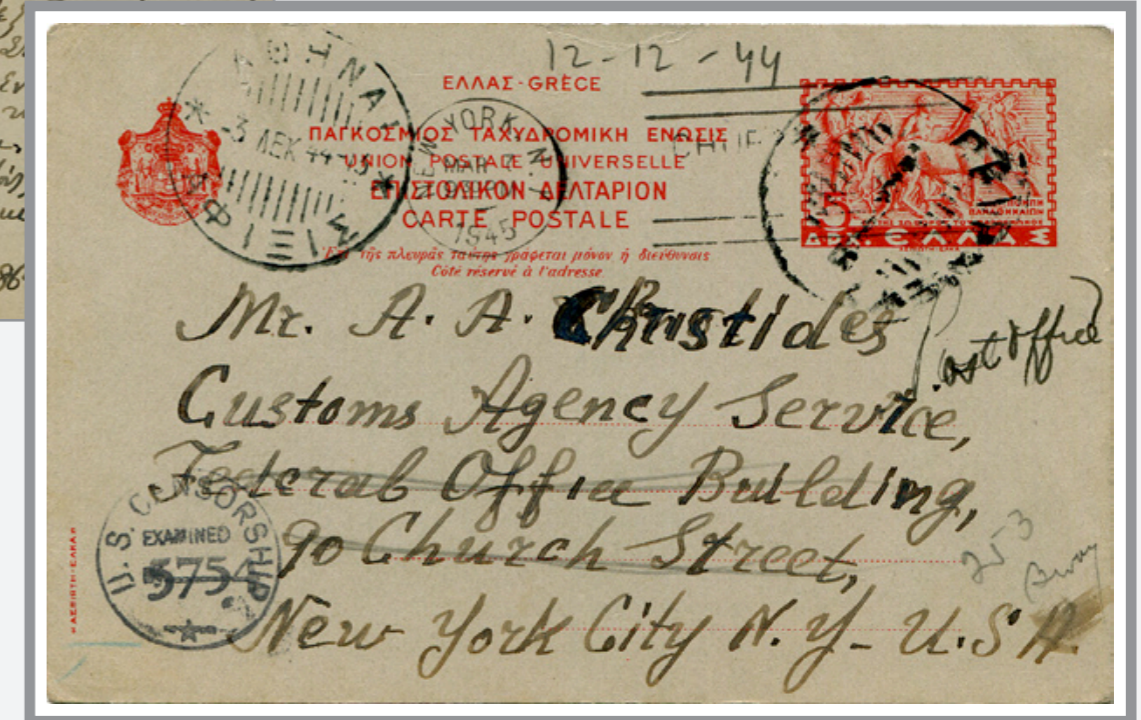 12-12-44
ΕΛΛΑΣ-GRÈCE
ΠΑΓΚΟΣΜΙΟΣ ΤΑΧΥΔΡΟΜΙΚΗ ΕΝΩΣΙΣ
UNION POSTALE UNIVERSELLE
ΕΠΙΣΤΟΛΙΚΟΝ ΔΕΛΤΑΡΙΟΝ
CARTE POSTALE
Ἐπὶ τῆς πλευρᾶς ταύτης γράφεται μόνον ἡ διεύθυνσις
Côté réservé à l'adresse
ΑΘΗΝΑΙ
-3 ΔΕΚ 44
ΑΦΙΞΙΣ
NEW YORK, N.Y.
MAR
1945
5
ΔΡ. ΕΛΛΑΣ
Mr. A. A. Christides
Post office
Customs Agency Service,
Federal Office Building,
90 Church Street,
New York City N.Y- U.S.A.
253
Bway
U.S. CENSORSHIP
EXAMINED
5754